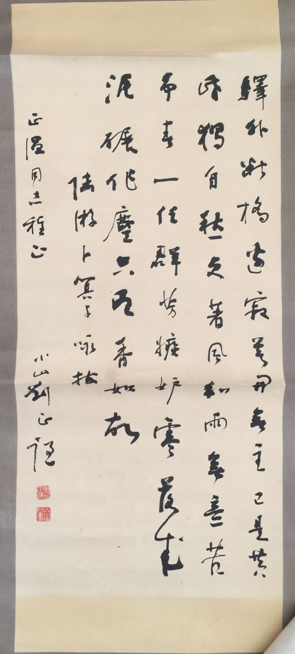 驛外斷橋邊寂寞開無主已是黃
昏獨自愁更著風和雨無意苦
爭春一任群芳妒零落成
泥碾作塵只有香如故
陸游卜算子咏梅
正温同志雅正
小山劉正